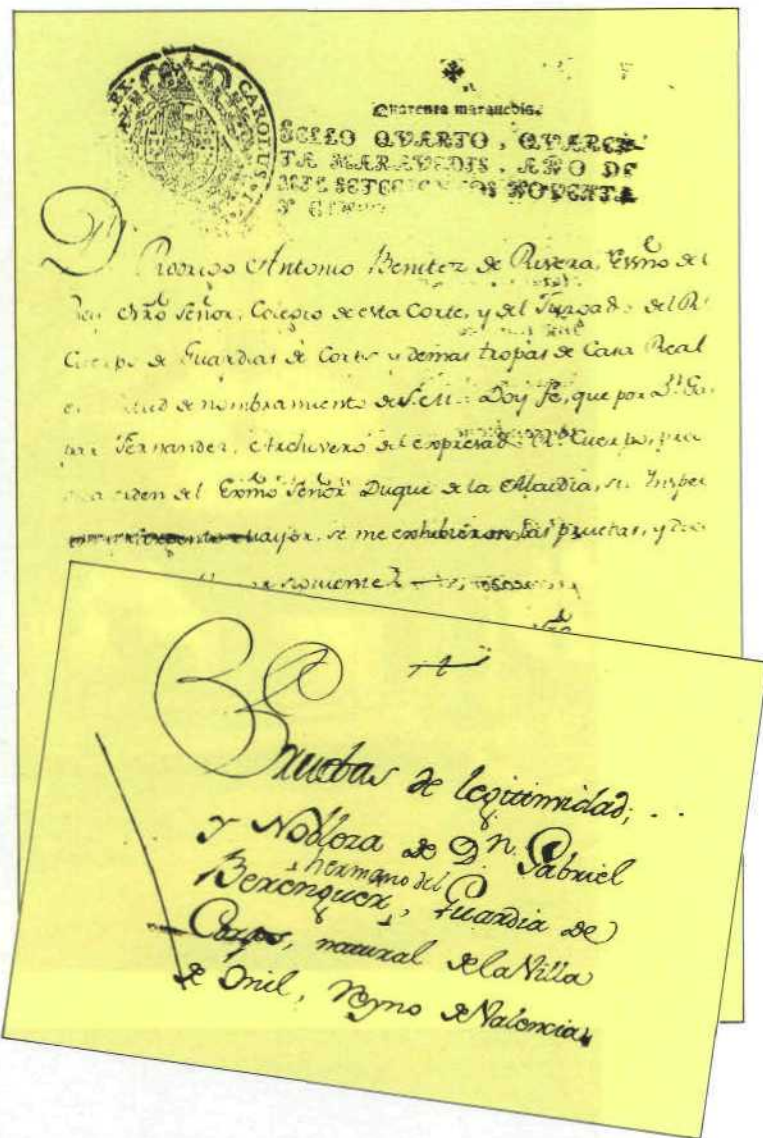 CAROLUS
Quarenta maravedis.
SELLO QVARTO, QVAREN-
TA MARAVEDIS, AÑO DE
MIL SETECIENTOS NOVENTA
Y CINCO
Dn. Rodrigo Antonio Benitez de Rivera, Essno del
Rey nro Señor, Colegio de esta Corte, y del Juzgado del Rl
Cuerpo de Guardias de Corps y demas tropas de Casa Real
en virtud de nombramiento de S.M.: Doy fe, que por Dn. Gas
par Fernandez, Archivero del expresado Rl. Cuerpo,
orden del Exmo Señor Duque de la Alcudia, su Inspec
mayor, se me exhibieron las pruebas, y
siguiente
Pruebas de legitimidad,
y Nobleza de Dn. Gabriel
hermano del
Berenguer, Guardia de
Corps, natural de la Villa
de Onil, Reyno de Valencia